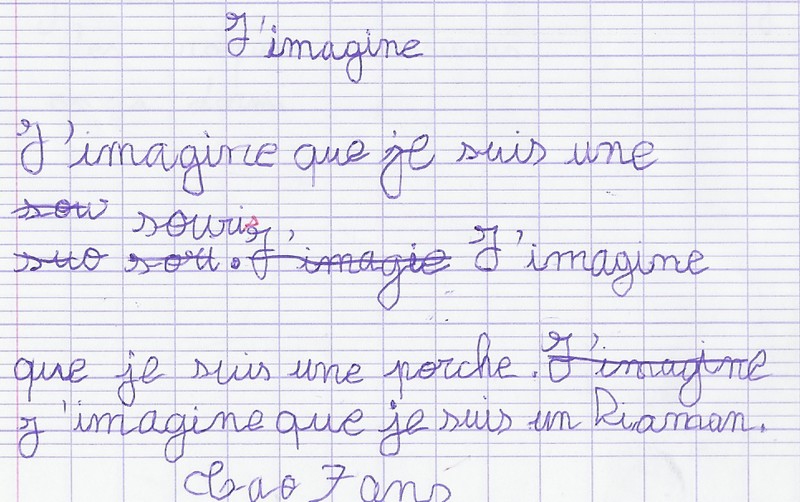 J'imagine
J'imagine que je suis une
sou souris
suo sou. J'imagie J'imagine
que je suis une porche. J'imagine
J'imagine que je suis un Diaman.
7 ans